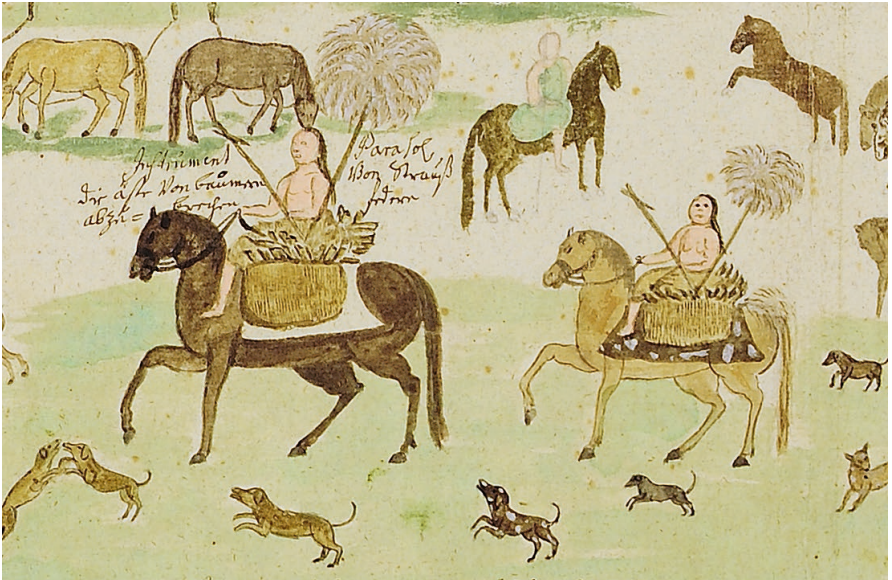 Instrument
die äste Von baümen
abzu= brechen
Parasol
Von Strauß
federn